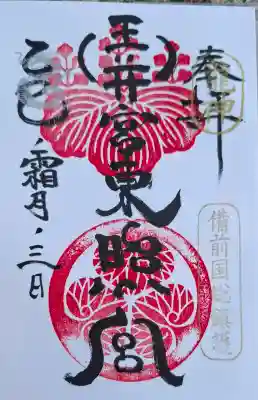 奉拝
玉井宮東照宮
乙巳、霜月、三日
備前国総鎮護